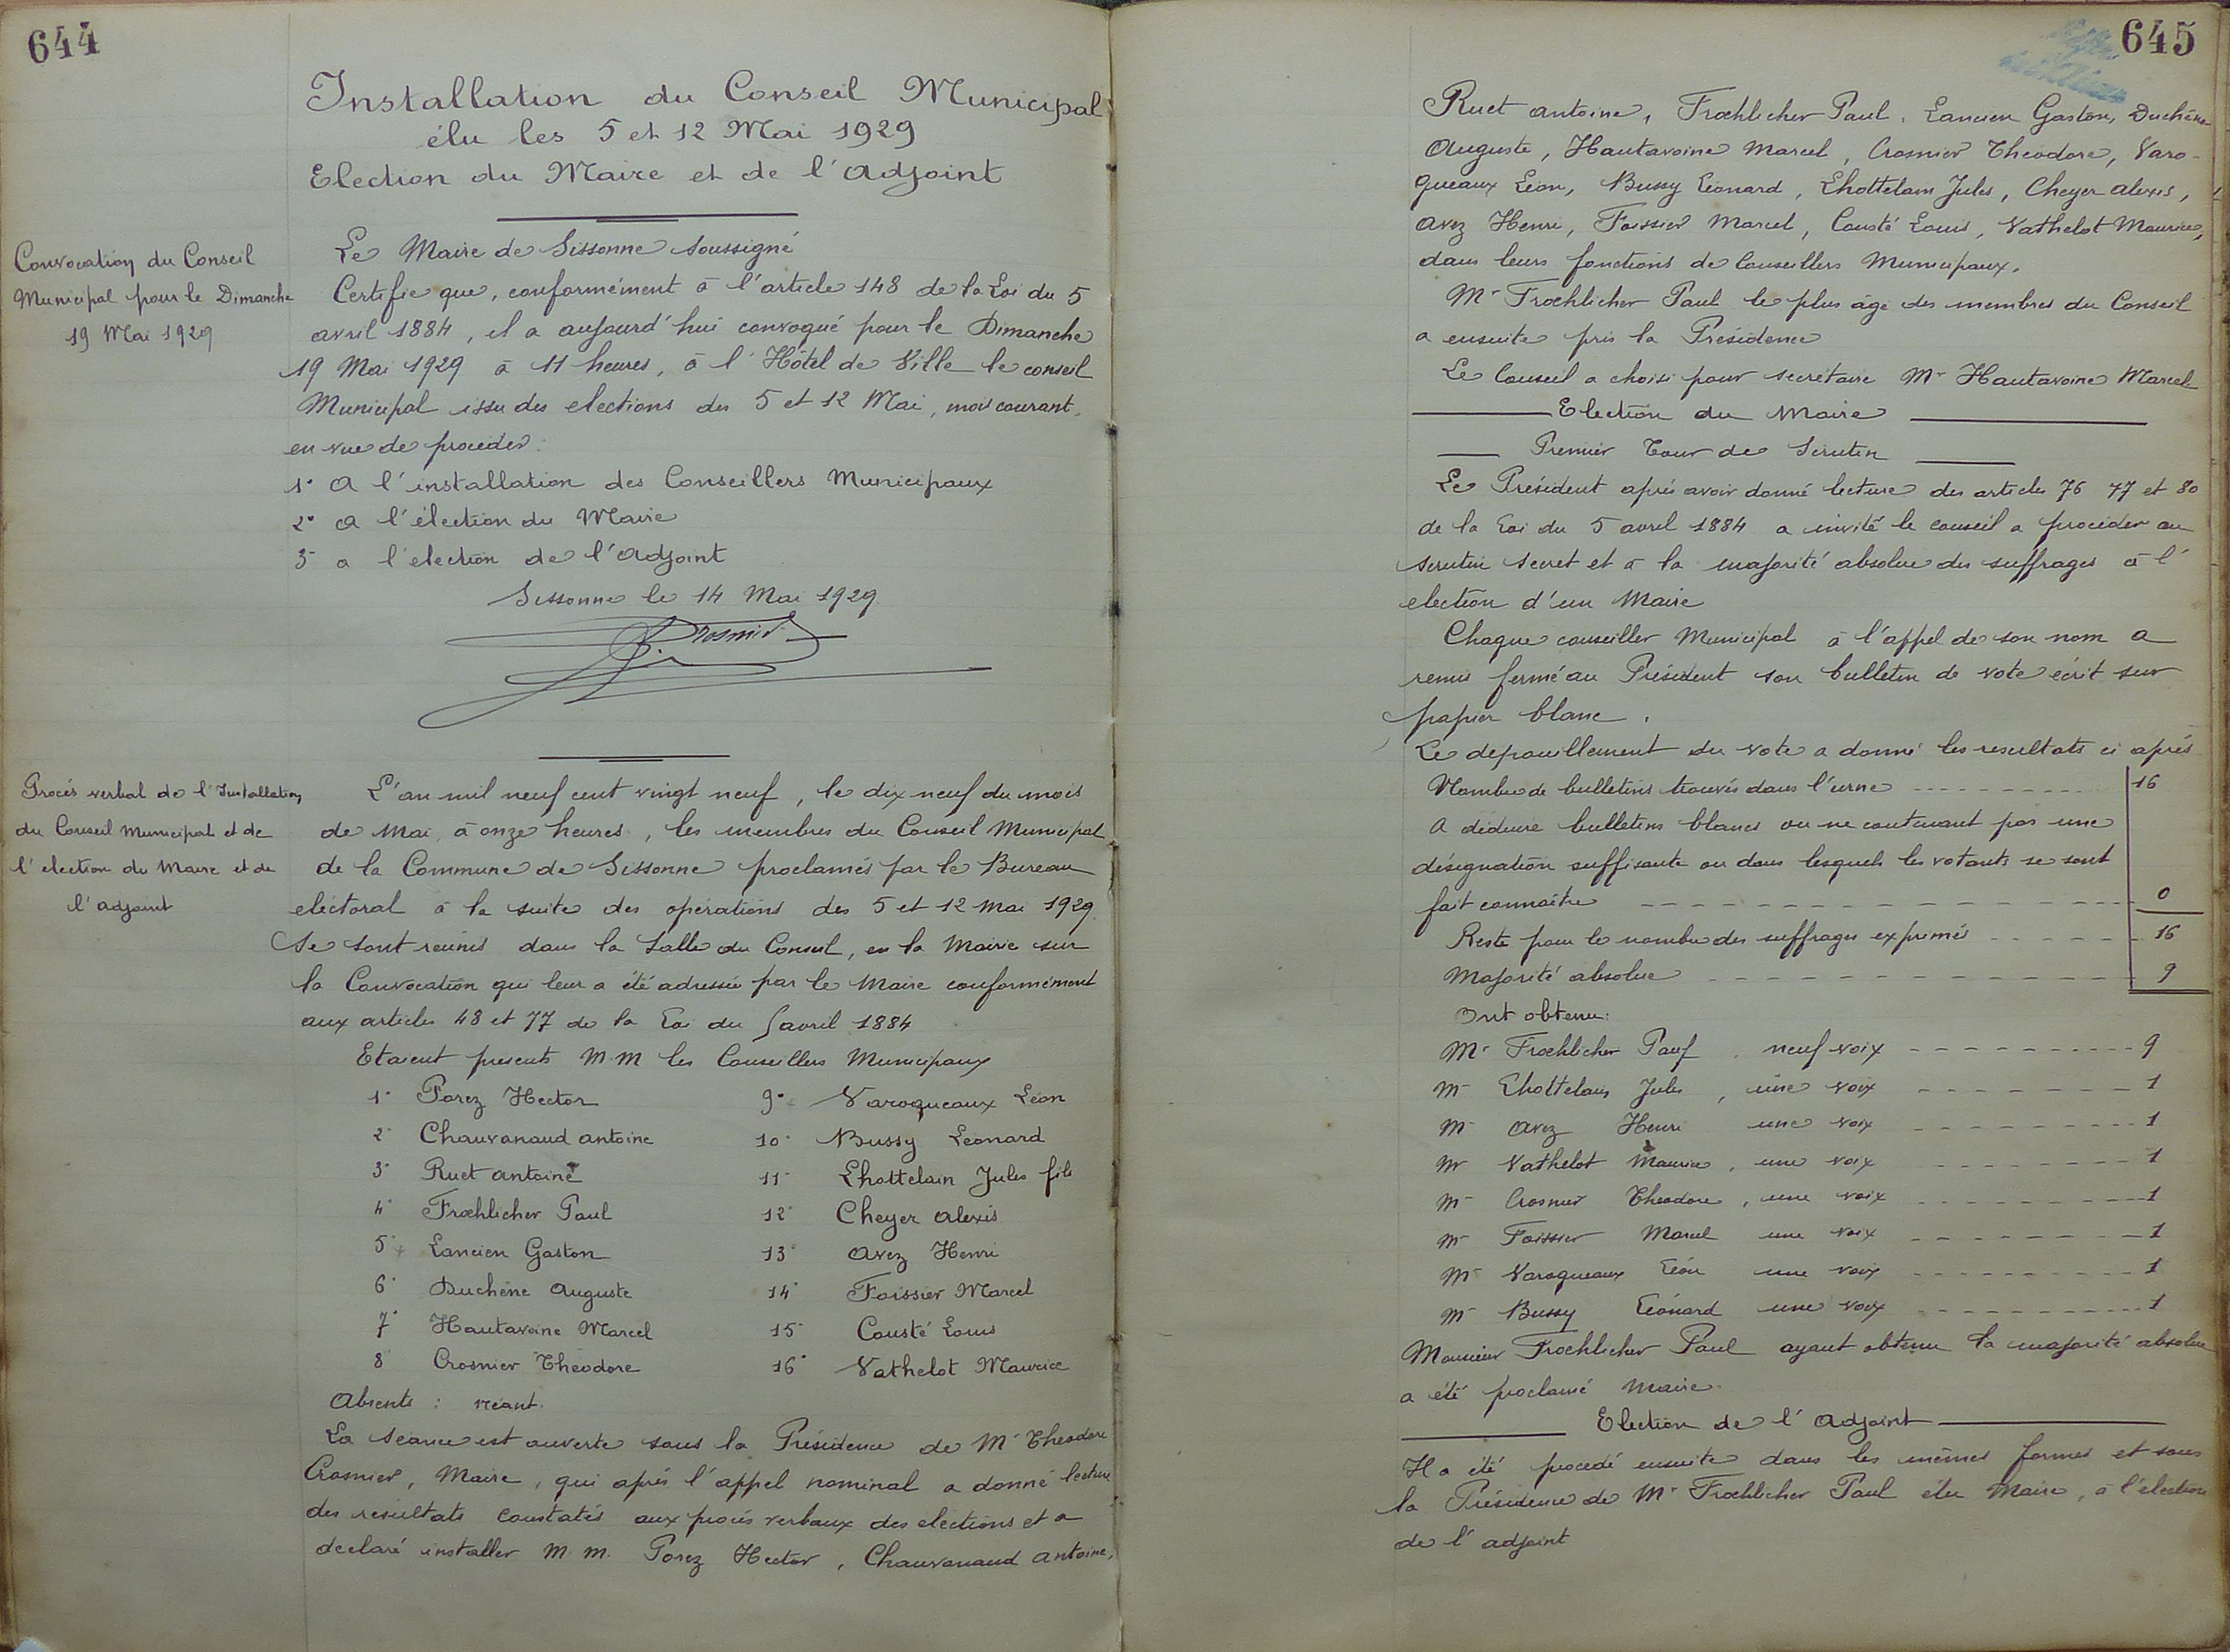 644
Installation du Conseil Municipal
élu les 5 et 12 Mai 1929
Election du Maire et de l'Adjoint
Convocation du Conseil
Municipal pour le Dimanche
19 Mai 1929
Le Maire de Sissonne soussigné
Certifie que, conformément à l'article 148 de la Loi du 5
avril 1884, il a aujourd'hui convoqué pour le Dimanche
19 Mai 1929 à 11 heures, à l'Hôtel de Ville le conseil
Municipal issu des elections des 5 et 12 Mai, mois courant,
en vue de proceder :
1° A l'installation des Conseillers Municipaux
2° A l'élection du Maire
3° a l'election de l'Adjoint
Sissonne le 14 Mai 1929
Crosnier
Procès verbal de l'Installation
du Conseil Municipal et de
l'election du Maire et de
l'adjoint
L'an mil neuf cent vingt neuf, le dix neuf du mois
de Mai, à onze heures, les membres du Conseil Municipal
de la Commune de Sissonne proclamés par le Bureau
electoral à la suite des opérations des 5 et 12 Mai 1929.
Se sont réunis dans la Salle du Conseil, en la Mairie sur
la Convocation qui leur a été adressée par le Maire conformément
aux articles 48 et 77 de la Loi du 5 avril 1884
Etaient presents M.M les Conseillers Municipaux
1° Porez Hector
2° Chauvanaud antoine
3° Ruet antoine
4° Frœhlicher Paul
5° Lancien Gaston
6° Duchêne Auguste
7° Hautavoine Marcel
8 Crosnier Théodore
9° Varoqueaux Léon
10° Bussy Léonard
11° Lhottelain Jules fils
12° Cheyer Alexis
13° Avez Henri
14° Foissier Marcel
15° Cousté Louis
16° Vathelot Maurice
Absents : néant.
La séance est ouverte sous la Présidence de Mr Théodore
Crosnier, Maire, qui après l'appel nominal a donné lecture
des résultats constatés aux procès verbaux des elections et a
declaré installer M.M. Porez Hector, Chauvanaud Antoine,
645
Ruet antoine, Frœhlicher Paul, Lancien Gaston, Duchêne
Auguste, Hautavoine Marcel, Crosnier Théodore, Varo-
queaux Léon, Bussy Léonard, Lhottelain Jules, Cheyer Alexis,
Avez Henri, Foissier Marcel, Cousté Louis, Vathelot Maurice,
dans leurs fonctions de Conseillers Municipaux.
Mr Frœhlicher Paul le plus âgé des membres du Conseil
a ensuite pris la Présidence
Le Conseil a choisi pour secrétaire Mr Hautavoine Marcel
Election du Maire
Premier Tour de Scrutin
Le Président après avoir donné lecture des articles 76 77 et 80
de la Loi du 5 avril 1884 a invité le conseil a procéder au
scrutin secret et à la majorité absolue des suffrages à l'
election d'un Maire
Chaque conseiller Municipal à l'appel de son nom a
remis fermé au Président son bulletin de vote écrit sur
papier blanc.
Le depouillement du vote a donné les resultats ci après
Nombre de bulletins trouvés dans l'urne 16
A déduire bulletins blancs ou ne contenant pas une
désignation suffisante ou dans lesquels les votants se sont
fait connaître 0
Reste pour le nombre des suffrages exprimés 16
Majorité absolue 9
Ont obtenu :
Mr Frœhlicher Paul, neuf voix 9
Mr Lhottelain Jules, une voix 1
Mr Avez Henri une voix 1
Mr Vathelot Maurice, une voix 1
Mr Crosnier Théodore, une voix 1
Mr Foissier Marcel une voix 1
Mr Varoqueaux Léon une voix 1
Mr Bussy Léonard une voix 1
Monsieur Frœhlicher Paul ayant obtenu la majorité absolue
a été proclamé Maire.
Election de l'Adjoint
Il a été procédé ensuite dans les mêmes formes et sous
la Présidence de Mr Frœhlicher Paul élu Maire, à l'élection
de l'adjoint